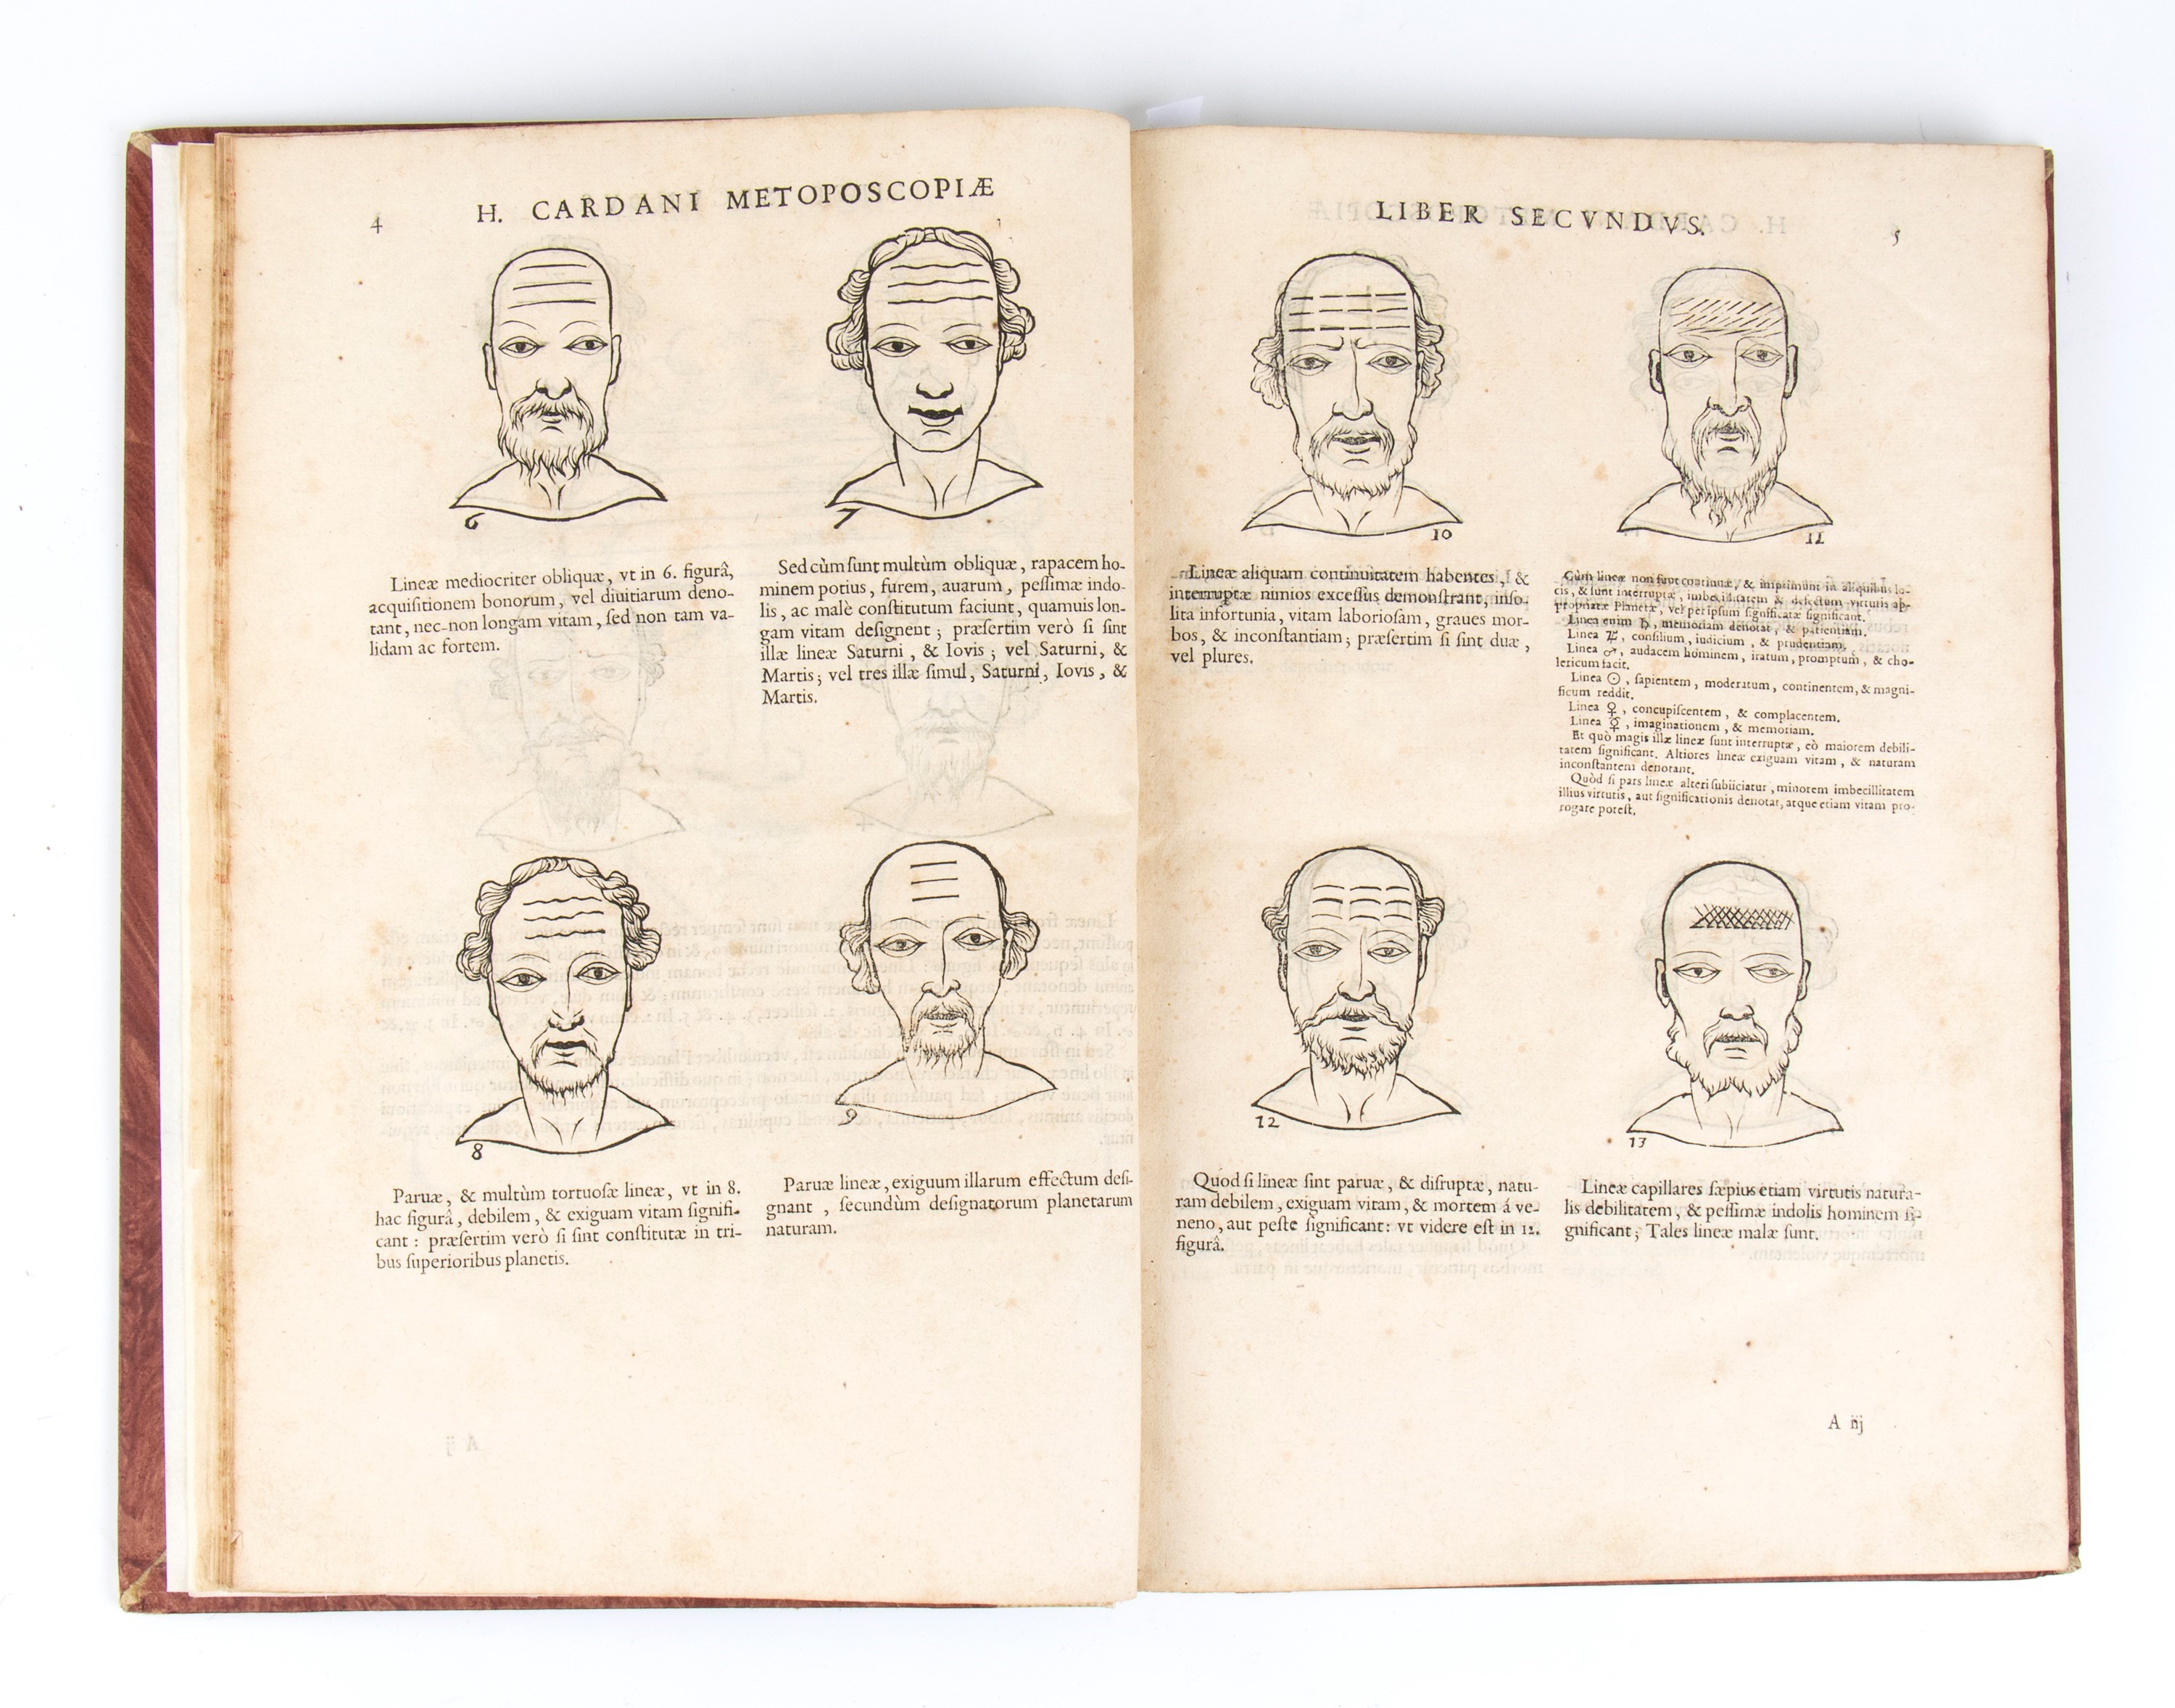 4
H. CARDANI METOPOSCOPIÆ
6
Lineæ mediocriter obliquæ, vt in 6. figurâ,
acquiſitionem bonorum, vel diuitiarum deno-
tant, nec-non longam vitam, ſed non tam va-
lidam ac fortem.
7
Sed cùm ſunt multùm obliquæ, rapacem ho-
minem potius, furem, auarum, peſſimæ indo-
lis, ac malè conſtitutum faciunt, quamuis lon-
gam vitam deſignent; præſertim verò ſi ſint
illæ lineæ Saturni, & Iovis; vel Saturni, &
Martis; vel tres illæ ſimul, Saturni, Iovis, &
Martis.
8
Paruæ, & multùm tortuoſæ lineæ, vt in 8.
hac figurâ, debilem, & exiguam vitam ſignifi-
cant: præſertim verò ſi ſint conſtitutæ in tri-
bus ſuperioribus planetis.
9
Paruæ lineæ, exiguum illarum effectum deſi-
gnant, ſecundùm deſignatorum planetarum
naturam.
LIBER SECVNDVS.
5
10
Lineæ aliquam continuitatem habentes, &
interruptæ nimios exceſſus demonſtrant, inſo-
lita infortunia, vitam laborioſam, graues mor-
bos, & inconſtantiam; præſertim ſi ſint duæ,
vel plures.
11
Cùm lineæ non ſunt continuæ, & imprimunt in aliquibus lo-
cis, & ſunt interruptæ, imbecillitatem & defectum virtutis ap-
propriatæ Planetæ, vel per ipſum ſignificatæ ſignificant.
Linea enim ♄, memoriam denotat, & patientiam.
Linea ♃, conſilium, iudicium, & prudentiam.
Linea ♂, audacem hominem, iratum, promptum, & cho-
lericum facit.
Linea ☉, ſapientem, moderatum, continentem, & magni-
ficum reddit.
Linea ♀, concupiſcentem, & complacentem.
Linea ☿, imaginationem, & memoriam.
Et quò magis illæ lineæ ſunt interruptæ, eò maiorem debili-
tatem ſignificant. Altiores lineæ exiguam vitam, & naturam
inconſtantem denotant.
Quòd ſi pars lineæ alteri ſubiiciatur, minorem imbecillitatem
illius virtutis, aut ſignificationis denotat, atque etiam vitam pro-
rogare poteſt.
12
Quod ſi lineæ ſint paruæ, & diſruptæ, natu-
ram debilem, exiguam vitam, & mortem á ve-
neno, aut peſte ſignificant: vt videre eſt in 12.
figurâ.
13
Lineæ capillares ſæpius etiam virtutis natura-
lis debilitatem, & peſſimæ indolis hominem ſi-
gnificant; Tales lineæ malæ ſunt.
A iij